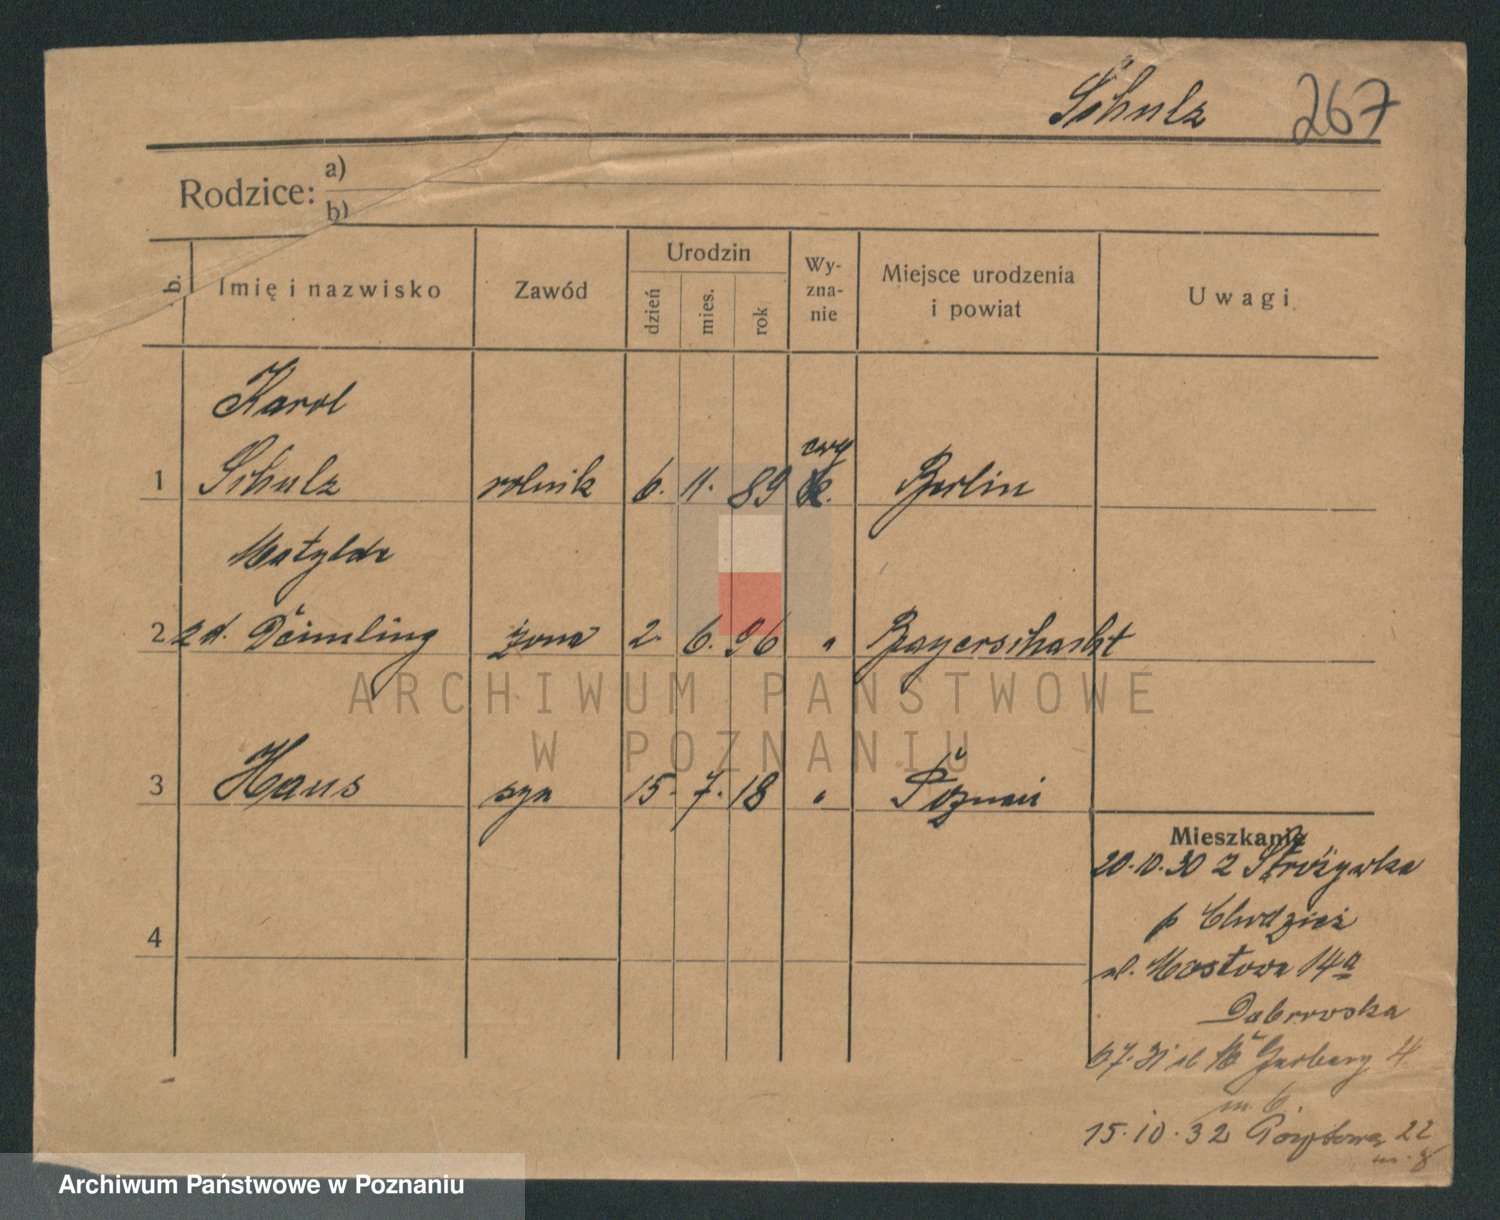 Schulz 267
Rodzice: a)
b)
b. Imię i nazwisko Zawód Urodzin dzień mies. rok Wy-zna-nie Miejsce urodzenia i powiat Uwagi
Karol
1 Schulz rolnik 6. 11. 89 ewg Berlin
Matylda
2 zd. Deimling żona 2. 6. 96 " Bayerschacht
ARCHIWUM PAŃSTWOWE
W POZNANIU
3 Hans syn 15. 7. 18 " Poznań
Mieszkanie
20.10.30 z Stróżewka
p Chodzież
4
ul. Mostowa 14a
Dąbrowska
7.31 ul Garbary 4
m. 6.
15.10.32 Pocztowa 22
m. 8
Archiwum Państwowe w Poznaniu